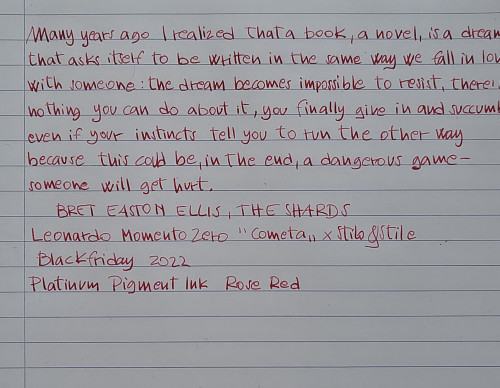 Many years ago I realized that a book, a novel, is a dream
that asks itself to be written in the same way we fall in lov
with someone: the dream becomes impossible to resist, there
nothing you can do about it, you finally give in and succumb
even if your instincts tell you to run the other way
because this could be, in the end, a dangerous game–
someone will get hurt.
BRET EASTON ELLIS, THE SHARDS
Leonardo Momento Zero "Cometa" x Stilo&Stile
Blackfriday 2022
Platinum Pigment Ink Rose Red